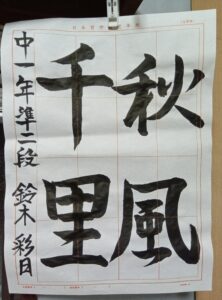 秋風
千里
中一年 準二段 鈴木 彩日